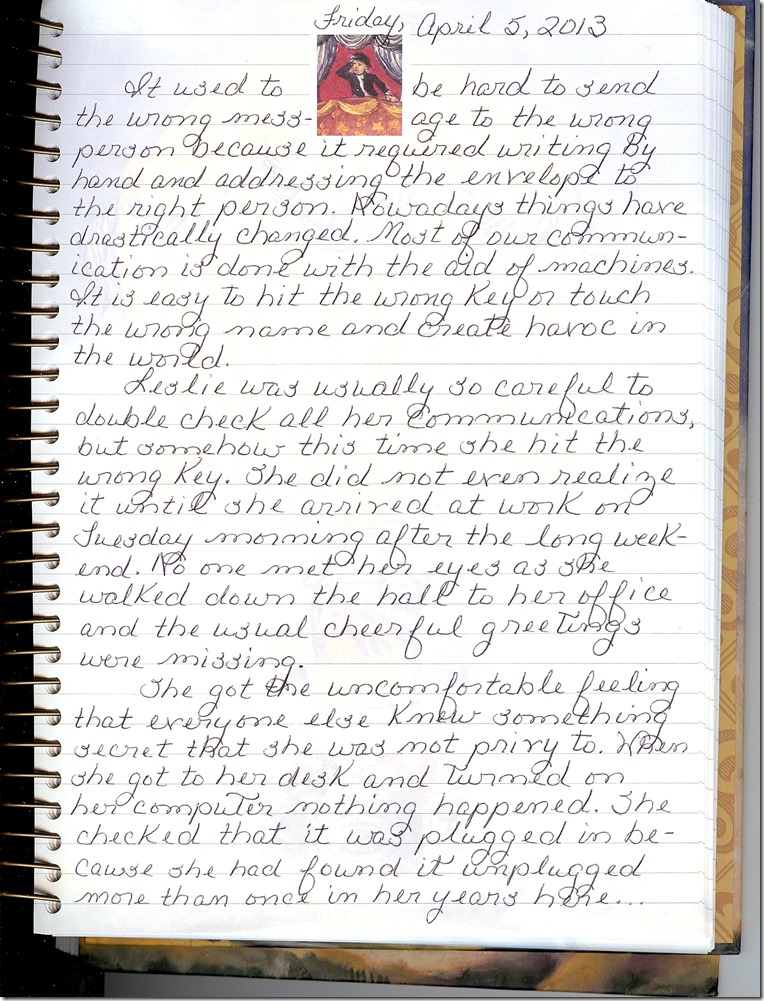 Friday, April 5, 2013
It used to be hard to send
the wrong mess- age to the wrong
person because it required writing by
hand and addressing the envelope to
the right person. Nowadays things have
drastically changed. Most of our commun-
ication is done with the aid of machines.
It is easy to hit the wrong key or touch
the wrong name and create havoc in
the world.
Leslie was usually so careful to
double check all her communications,
but somehow this time she hit the
wrong key. She did not even realize
it until she arrived at work on
Tuesday morning after the long week-
end. No one met her eyes as she
walked down the hall to her office
and the usual cheerful greetings
were missing.
She got the uncomfortable feeling
that everyone else knew something
secret that she was not privy to. When
she got to her desk and turned on
her computer nothing happened. She
checked that it was plugged in be-
cause she had found it unplugged
more than once in her years here...